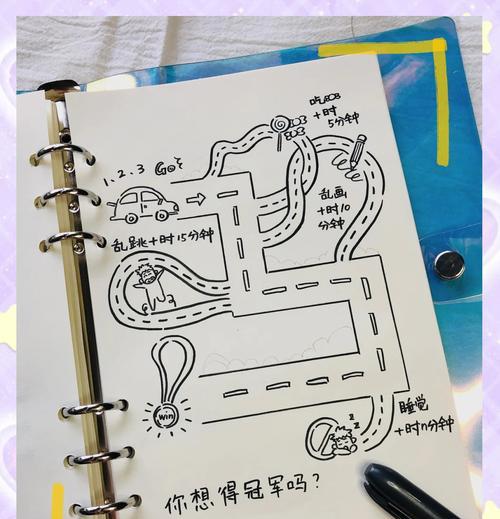 1.2.3 Go!
吃
+时
5分钟
乱画
+时10
分钟
乱跳+时15分钟
win
z z
睡觉
+时n分钟
你想得冠军吗?